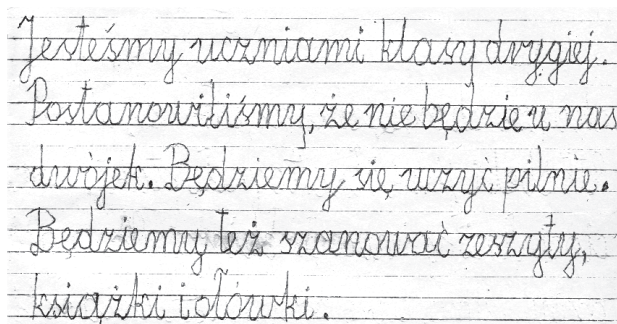 Jesteśmy uczniami klasy drugiej.
Postanowiliśmy, że nie będzie u nas
dwójek. Będziemy się uczyć pilnie.
Będziemy też szanować zeszyty,
książki i ołówki.